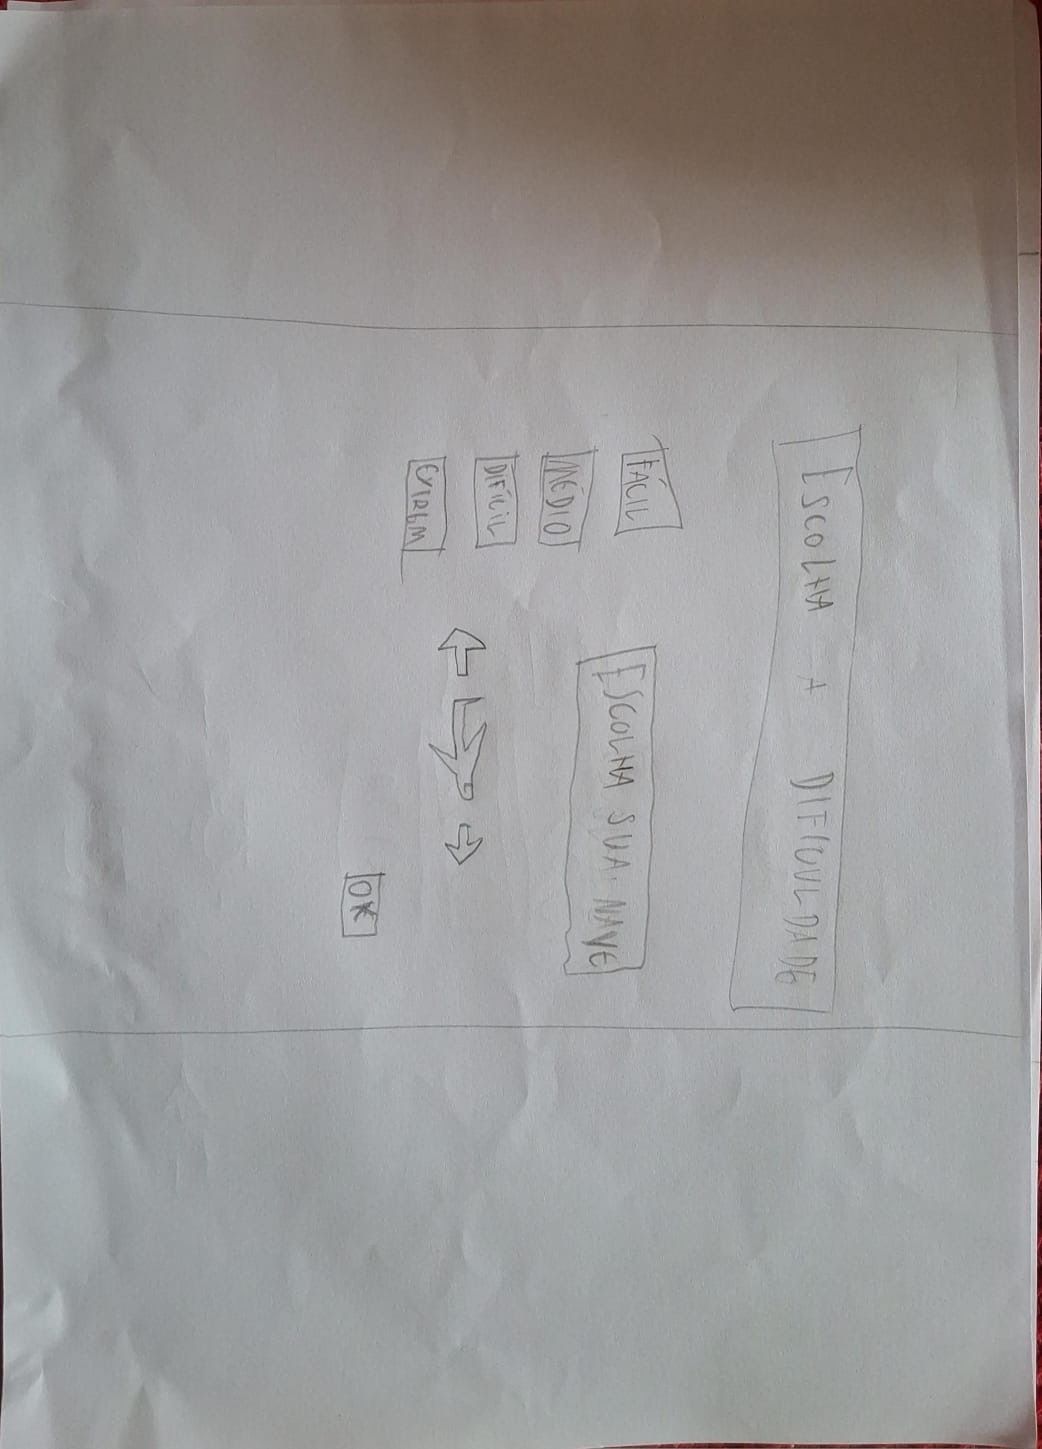 ESCOLHA A DIFICULDADE
FÁCIL
MÉDIO
DIFÍCIL
EXTREM
ESCOLHA SUA NAVE
OK